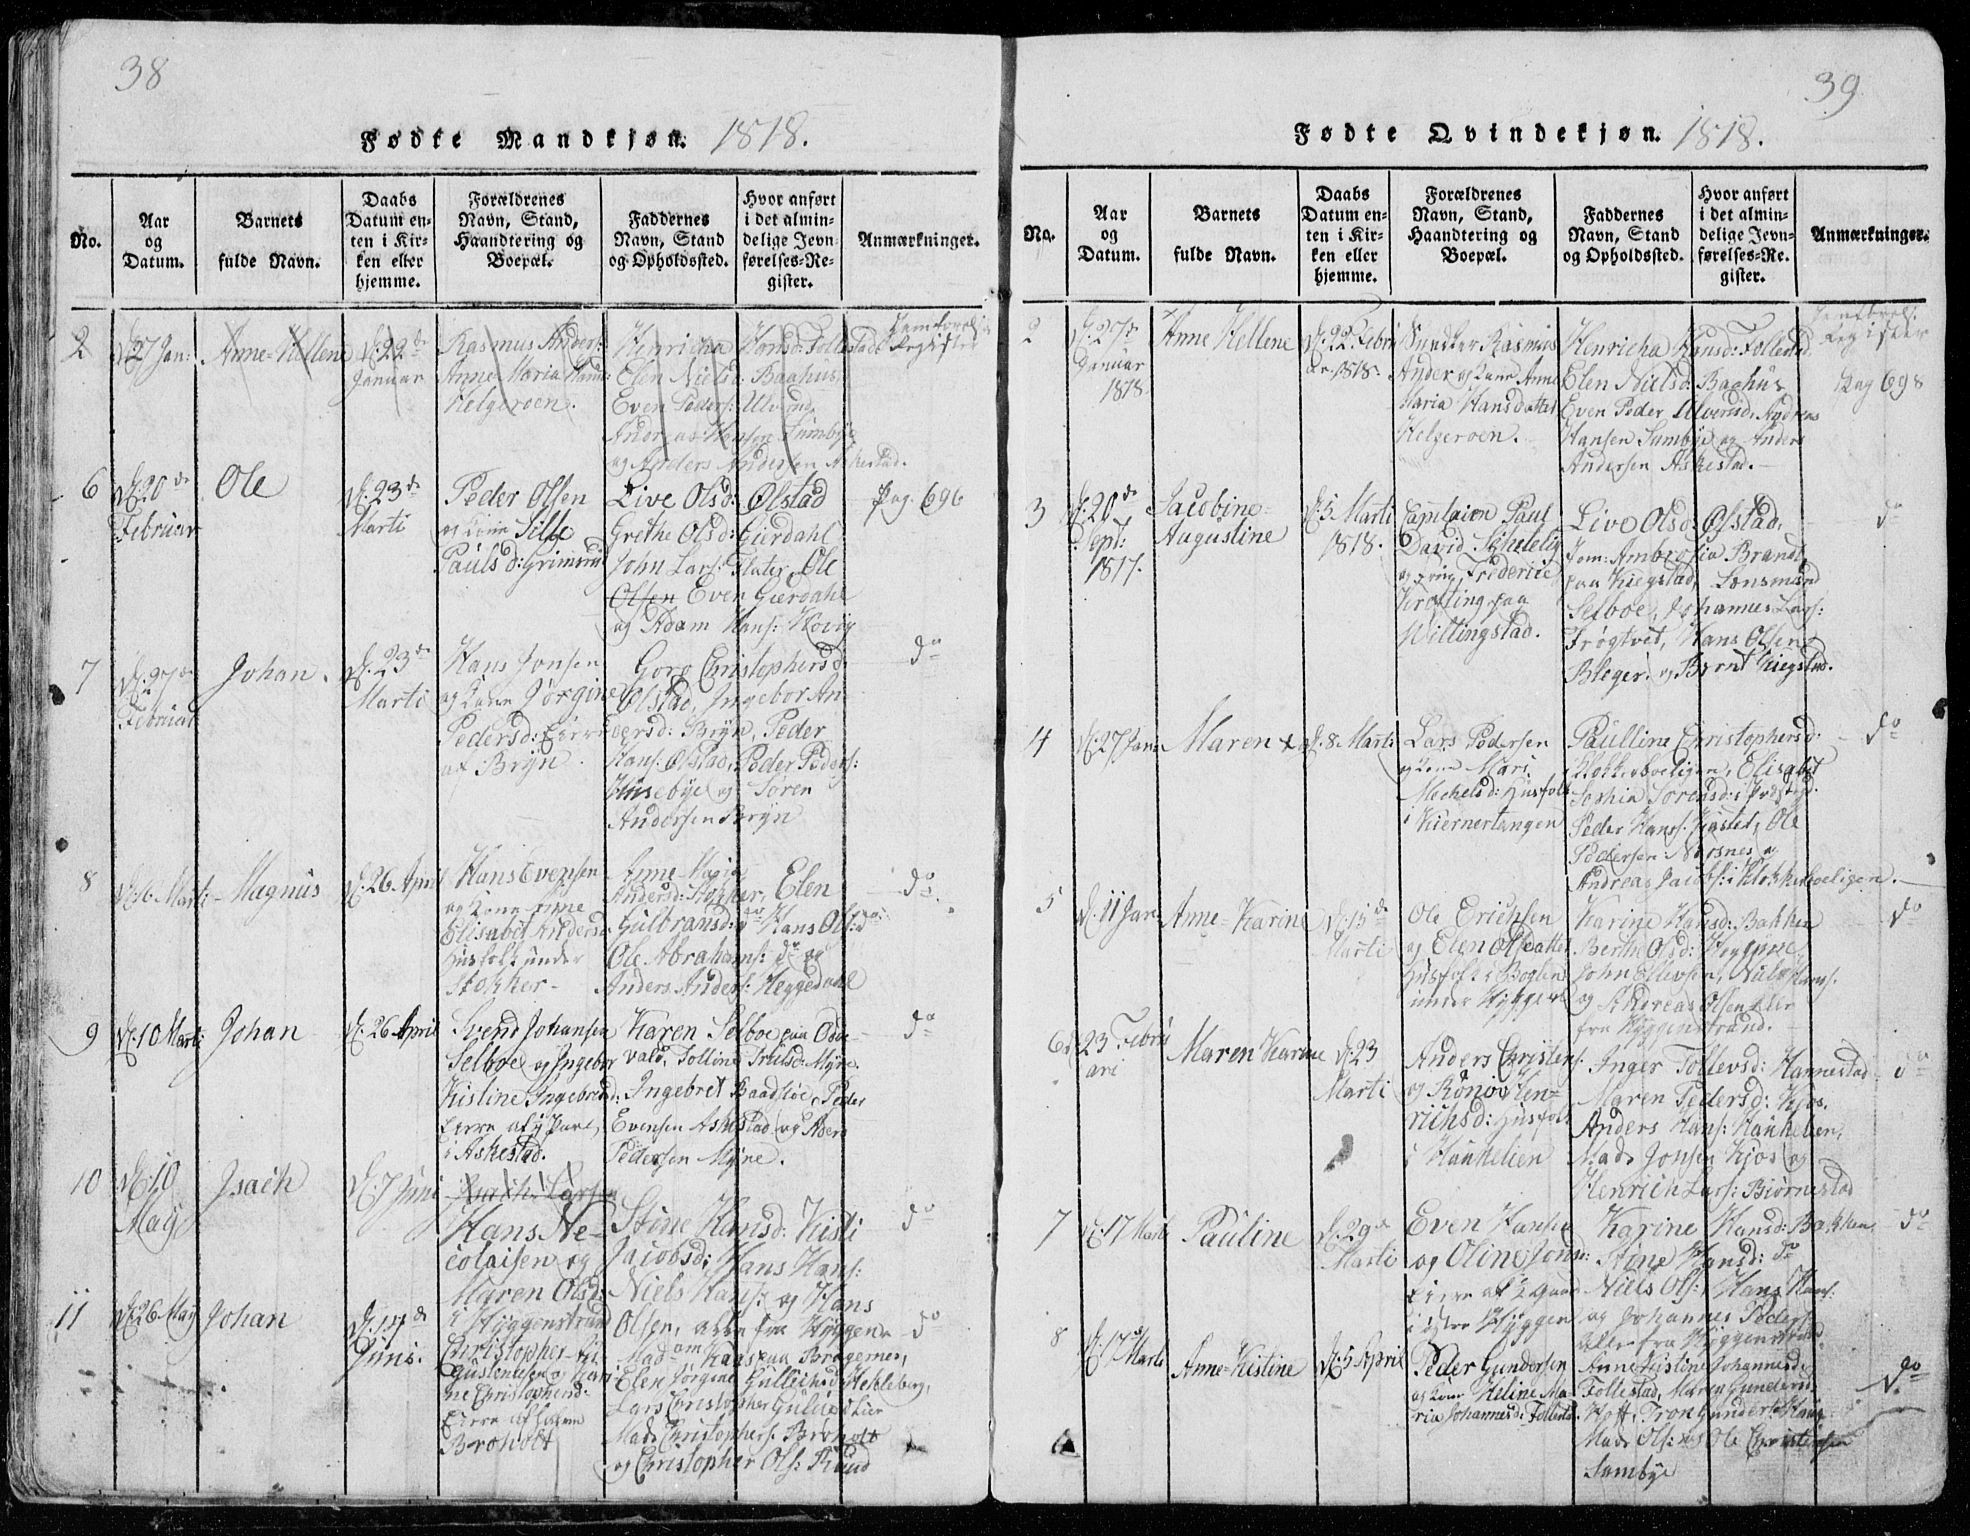 38
Fødte Mandkjøn. 1818.
No.
Aar
og
Datum.
Barnets
fulde Navn.
Daabs
Datum en-
ten i Kir-
ken eller
hjemme.
Forældrenes
Navn, Stand,
Haandtering og
Boepæl.
Faddernes
Navn, Stand
og Opholdssted.
Hvor anført
i det almin-
delige Jevn-
førelses-Re-
gister.
Anmærkninger.
2
27 Jan:
Anne-Hellene
d. 22de
Januar
Rasmus Anders:
Anne-Maria Hans:
Helgeroen.
Henricha Hansd: Follestad
Elen Nielsd: Baahus
Even Peders: Ulverud
Andreas Hansen Sumbye
og Anders Andersen Askestad.
6
d. 20de
Februar
Ole
d. 23de
Marti
Peder Olsen
og Kone Sille
Paulsd: Grimsrud
Live Olsd: Ølstad
Grethe Olsd: Gierdahl
John Lars: Flater, Ole
Olsen Even Gierdahl
og Adam Hans: Hovig
Pag. 696
7
d. 27de
Februar
Johan.
d. 23de
Marti
Hans Jonsen
og Kone Jørgine
Pedersd: Eiere
af Bryn.
Goro Christophersd:
Ølstad, Ingebor An-
dersd: Bryn, Peder
Hans: Ølstad, Peder Peders:
Husebye og Søren
Andersen Bryn
do
8
d. 16 Marti
Magnus
d. 26 April
Hans Evensen
og Kone Anne
Elisabet Andersd:
Husfolk under
Stokker
Anne Maria
Andersd: Stokker, Elen
Gulbransd: do Hans Ols: do
Ole Abrahams: do og
Anders Anders: Heggedahl
do
9
d. 10 Marti
Johan
d. 26 April
Svend Johansen
Selboe og Ingebor
Kistine Ingebretsd:
Eiere af ½ Part
i Askestad.
Karen Selboe paa Odde-
vald, Tolline Trulsd: Myne.
Ingebret Baadstøe, Peder
Evensen Askestad og
Pedersen Myne.
do
10
d. 10
May
Isach
d. 7 Juni
Hans Ne-
colaisen og
Maren Olsd:
i Hyggenstrand
Stine Hansd: Kisti
Jacobsd: Hans Hans:
Niels Hans: og Hans
Olsen, alle fra Hyggen
do
11
d. 26 May
Johan
d. 14de
Juni.
Christopher
Gustensen og Kari-
ne Christophersd:
Eiere af
Broholt
Madam Haas paa Bragernes,
Elen Jørgine Gullichsd: Hekleberg,
Lars Christopher Gulliks: Lier
Mads Christophers: Broholt
og Christopher Ols: Ruud
do
39
Fødte Qvindekjøn. 1818.
No.
Aar
og
Datum.
Barnets
fulde Navn.
Daabs
Datum en-
ten i Kir-
ken eller
hjemme.
Forældrenes
Navn, Stand,
Haandtering og
Boepæl.
Faddernes
Navn, Stand
og Opholdssted.
Hvor anført
i det almin-
delige Jevn-
førelses-Re-
gister.
Anmærkninger.
2
d. 27de
Januar
1818
Anne Hellene
d. 22 Febru
ar 1818.
Rasmus
Anders og Kone Anne
Maria Hansdatter
Helgeroen.
Henricha Hansd: Follestad
Elen Nielsd: Baahus
Even Peder Ulverud, Andreas
Hansen Sumbye og Anders
Andersen Askestad.
Register
Pag 698
3
d. 20de
Sept:
1817.
Jacobine
Augustine
d. 5 Marti
1818.
Captaien Paul
David Schetelig
og Frue Frederice
Krefting paa
Willingstad.
Live Olsd: Ølstad,
Jom: Ambrosia Brandt
paa Kiegstad, Lensmand
Selboe, Johannes Lars:
Frøgtvet, Hans Olsen
Bleger, og Bernt Kiegstad.
do
4
d. 27 Jan:
Maren
d. 8 Marti
Lars Pedersen
og Kone Mari
Mechelsd: Husfolk
i Kiernertangen
Paulline Christophersd:
Klokkerboeligen, Elisabet
Sophia Sorensd: i Præstegd:
Peder Hans: Kiøstel, Ole
Pedersen Nærsnes og
Andreas Jacobs: i Klokkerboeligen.
do
5
d. 11 Jan:
Anne-Karine
d. 15de
Marti
Ole Erichsen
og Elen Olsdatter
Husfolk i Boglen
under Hyggen
Karine Hansd: Bakken
Berthe Olsd: Hyggene,
John Ellevsen, Niels Hans:
og Andreas Olsen alle
fra Hyggenstrand.
do
6
d. 23 Febru
ari
Maren Karine
d. 23
Marti
Anders Christens:
og Rønov Hen-
richsd: Husfolk
i Haukelien
Inger Tollevsd: Hannestad
Maren Pedersd: Kjos,
Anders Hans: Haukelien,
Mads Jonsen Kjos og
Henrich Lars: Biørnestad
do
7
d. 17 Marti
Pauline
d. 29de
Marti
Even Hansen
og Oline Jonsd:
Eiere af ½ Gaard
i østre Hyggen
Karine Hansd: Bakken
Stine Hansd: do
Niels Ols: Hans Hans:
og Johannes Peders:
alle fra Hyggenstrand
do
8
d. 17 Marti
Anne-Kistine
d. 5 April
Peder Gundersen
og Kone Heline Ma-
ria Johannesd: Follestad.
Anne Kistine Johannesd:
Follestad, Maren Gundersd:
Hoff, Tron Gunders: Haug
Mads Ols: og Ole Christensen
Sumbye
do